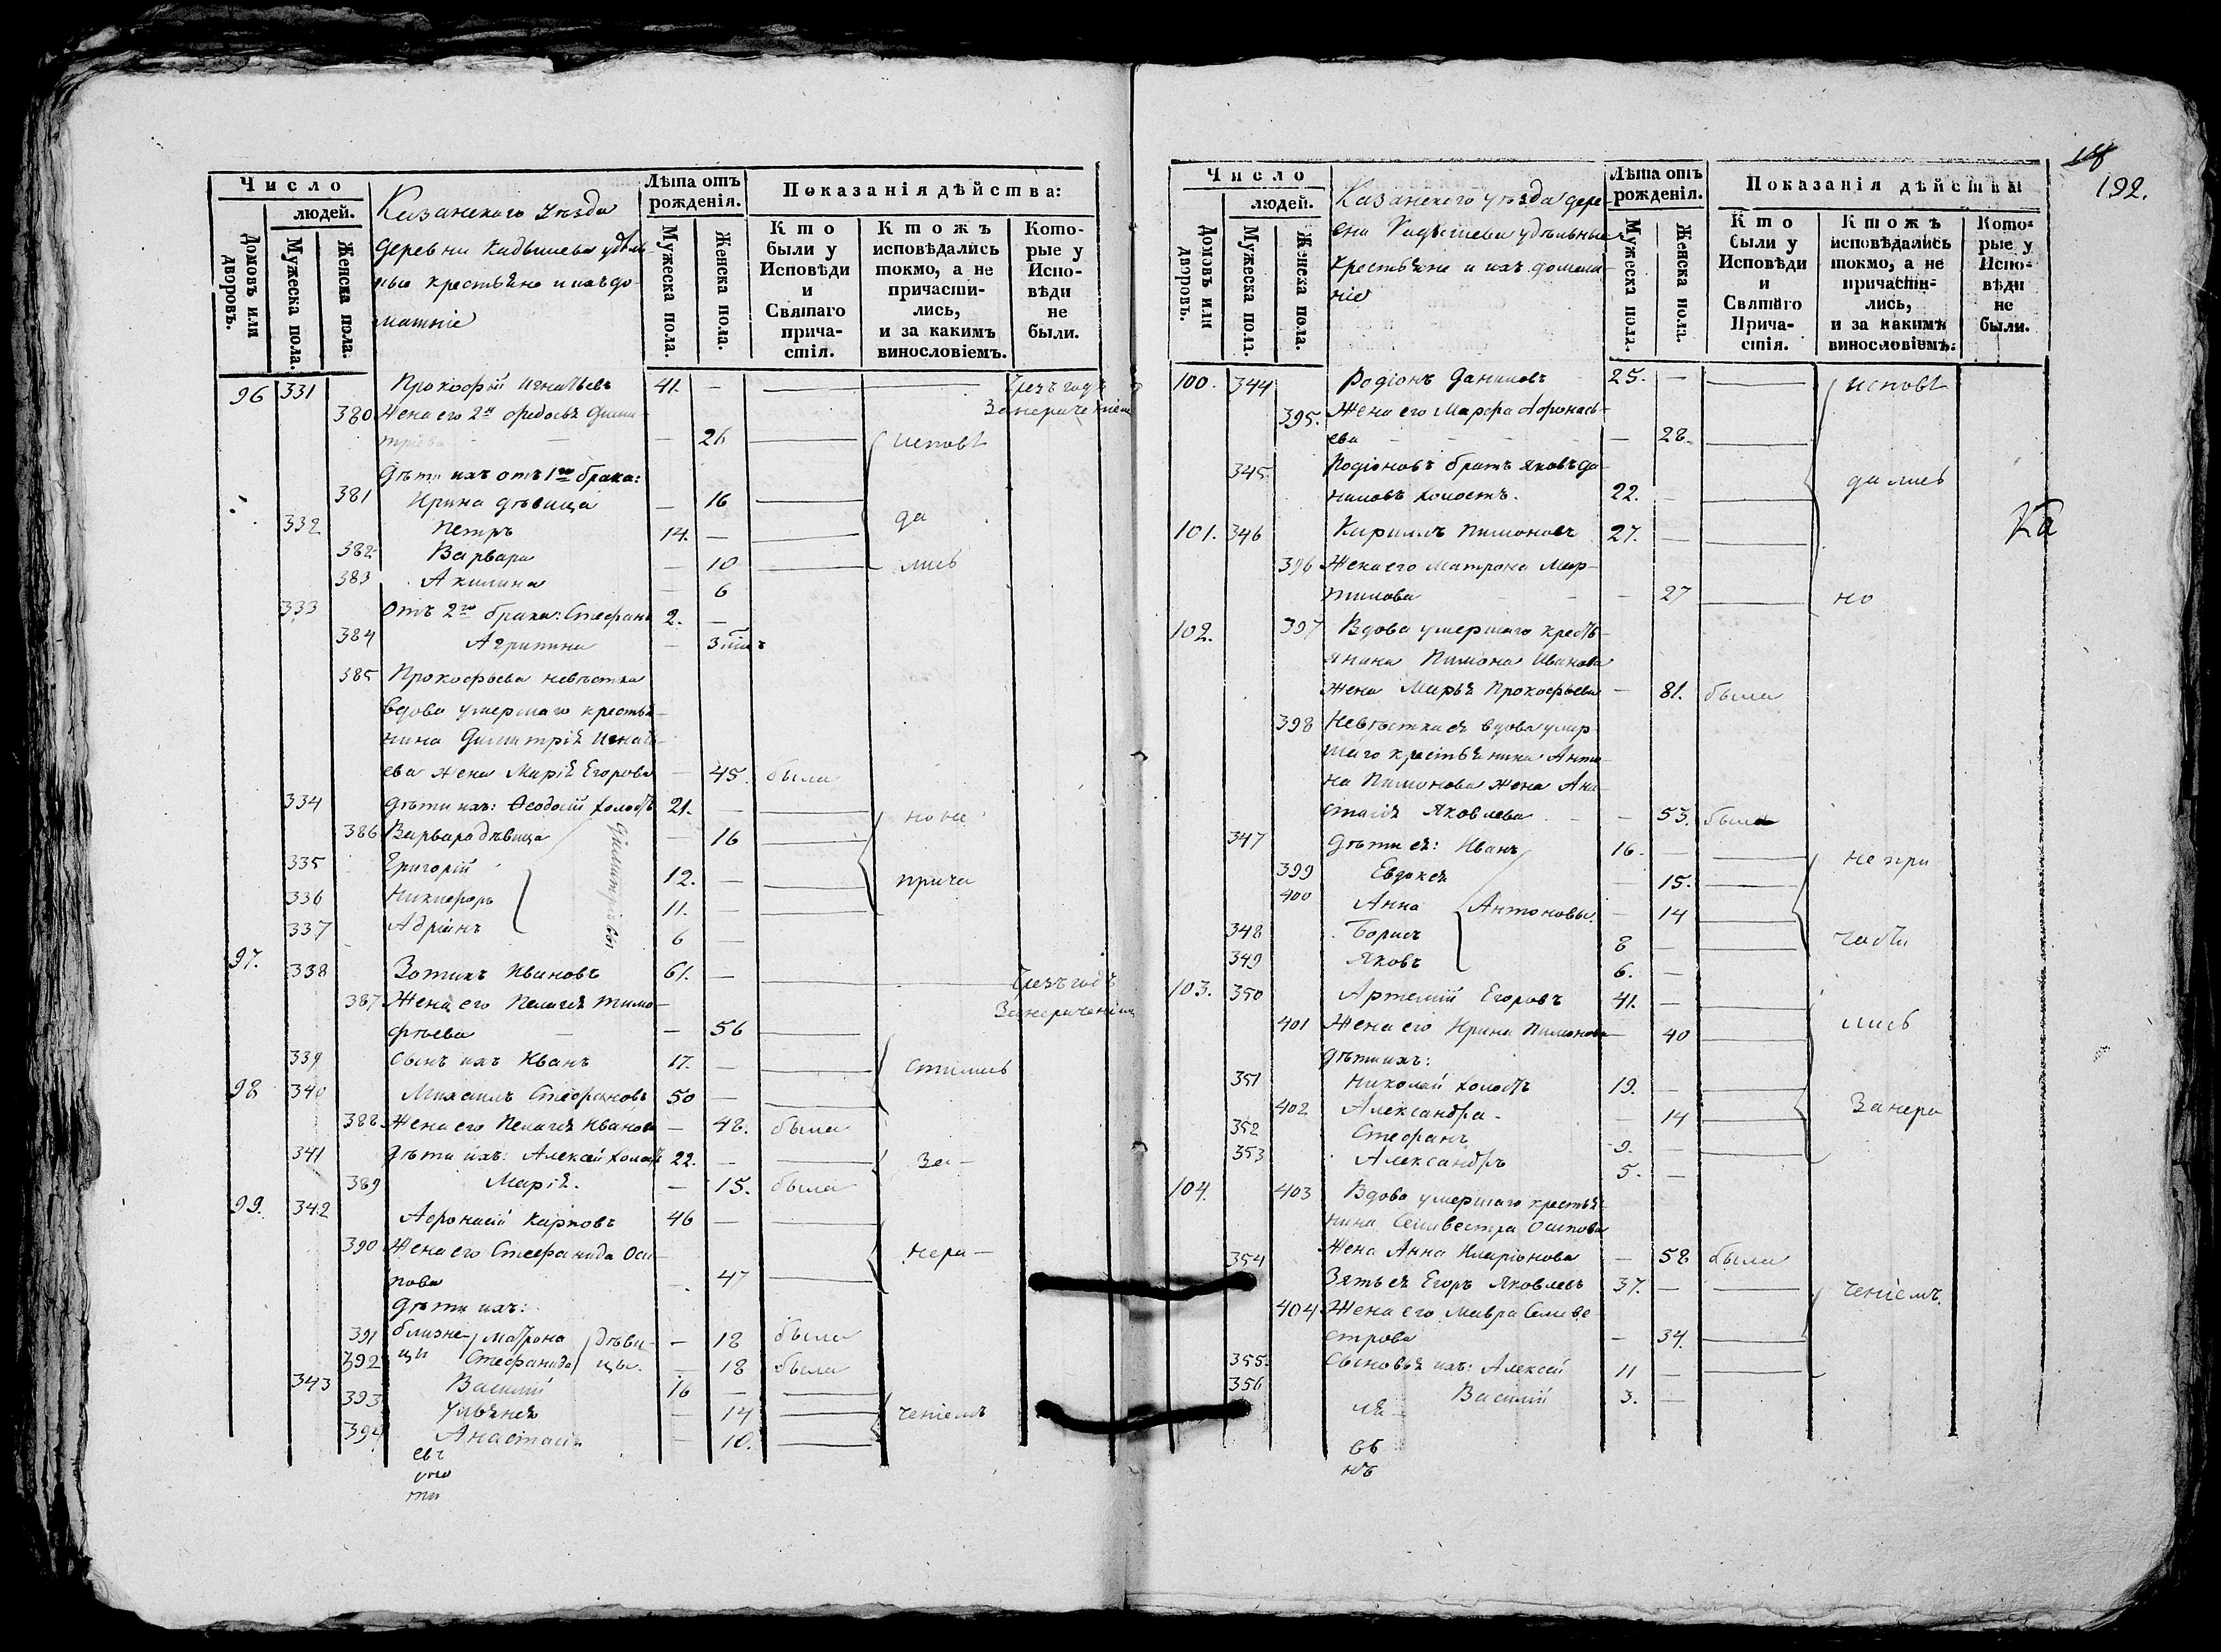 Число
людей.
Домовъ или дворовъ.
Мужеска пола.
Женска пола.
Казанскаго уѣзда
деревни Кадышева удѣль-
ные крестьяне и ихъ до-
машніе
Лѣта отъ рожденія.
Мужеска пола.
Женска пола.
Показанія дѣйства:
Кто были у Исповѣди и Святаго причастія.
Ктожъ исповѣдались токмо, а не причастились, и за какимъ винословіемъ.
Которые у Исповѣди не были.
96 331 Прокофій Игнатьевъ 41. — Чрезъ годъ
380 Жена его 2я Федосья Дими- За нерачениемъ
тріева — 26 исповѣ
Дѣти ихъ отъ 1го брака:
381 Ирина дѣвица — 16
332 Петръ 14. — да
382 Варвара — 10 лись
383 Акилина — 6
333 Отъ 2го брака: Стефанъ 2. —
384 Агрипина — 3
385 Прокофьева невѣстка
вдова умершаго крестья-
нина Димитрія Игнать-
ева жена Марія Егорова — 45. была
334 Дѣти ихъ: Ѳеодосій холостъ 21. — но не
386 Варвара дѣвица — 16
335 Григорій 12. — прича
336 Никифоръ 11. —
337 Адріанъ 6 —
Димитріевы
97. 338 Зотикъ Ивановъ 61. — Чрезъ годъ
387 Жена его Пелагея Тимо- За нераченіемъ
фѣева — 56
339 Сынъ ихъ Иванъ 17. — стились
98 340 Михаилъ Стефановъ 50 —
388 Жена его Пелагея Иванова — 48. была
341 Дѣти ихъ: Алексѣй холостъ 22. — за-
389 Марія. — 15. была
99. 342 Афонасій Карповъ 46 —
390 Жена его Стефанида Оси- нера-
пова — 47
Дѣти ихъ:
391 близне- Матрона дѣви- — 18 была
392 цы Стефанида цы. — 18 была
343 Василій 16 —
393 Ульяния — 14 ченіемъ
394 Анастасія — 10.
192.
Число
людей.
Домовъ или дворовъ.
Мужеска пола.
Женска пола.
Казанскаго уѣзда дере-
вни Кадышева удѣльные
крестьяне и ихъ домаш-
ніе
Лѣта отъ рожденія.
Мужеска пола.
Женска пола.
Показанія дѣйства
Кто были у Исповѣди и Святаго Причастія.
Ктожъ исповѣдались токмо, а не причастились, и за какимъ винословіемъ.
Которые у Исповѣди не были.
100. 344 Родіонъ Даниловъ 25. — исповѣ
395. Жена его Марфа Афонась-
ева — 28.
345. Родіоновъ братъ Яковъ Да- дались
ниловъ холостъ. 22. —
101. 346 Кириллъ Пимоновъ 27. —
Ка
396 Жена его Матрона Мар-
тинова — 27 но
102. 397 Вдова умершаго кресть-
янина Пимона Иванова
жена Марья Прокофьева — 81. была
398 Невѣстка ея вдова умер-
шаго крестьянина Анто-
на Пимонова жена Ана-
стасія Яковлева — 53. была
347 Дѣти ея: Иванъ 16. — не при
399 Евдокея — 15.
400 Анна Антоновы. — 14
348 Борисъ 8 — части
349 Яковъ 6. —
103. 350 Артемій Егоровъ 41. —
401 Жена его Ирина Пимонова — 40 лись
Дѣти ихъ:
351 Николай холостъ 19. —
402 Александра — 14 За нера
352 Стефанъ 9. —
353 Александръ 5. —
104. 403 Вдова умершаго крестья-
нина Селивестра Осипова
жена Анна Иларіонова — 58 была
354 Зять ея Егоръ Яковлевъ 37. — ченіемъ.
404 Жена его Мавра Селиве-
строва — 34.
355. Сыновья ихъ: Алексѣй 11 —
356 Василій 3. —